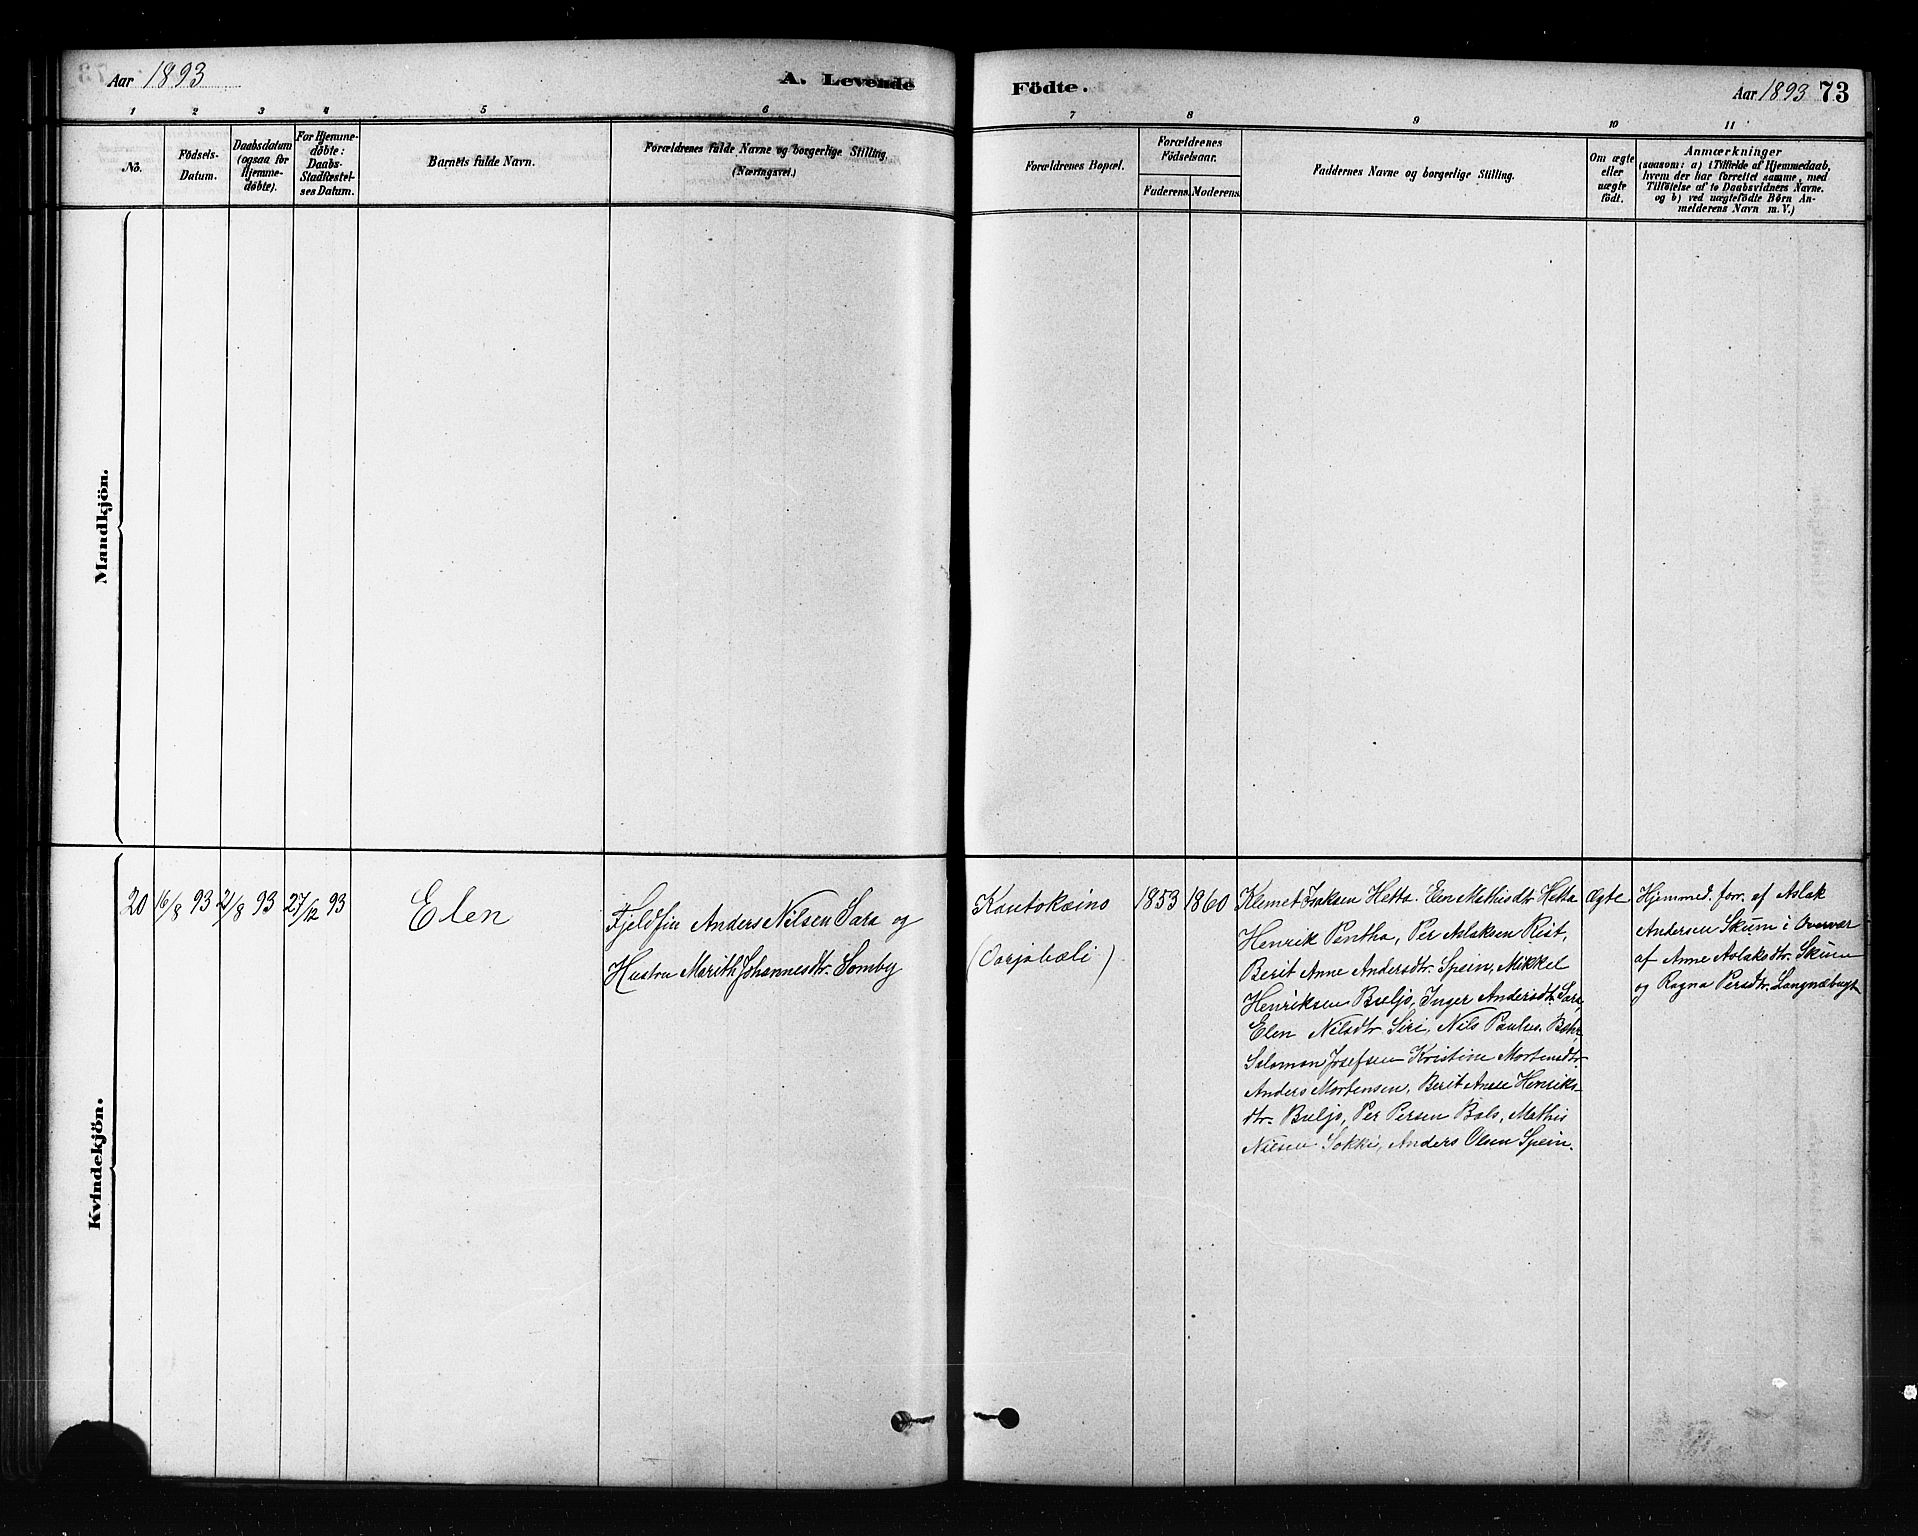 Aar 1893
A. Levende
Födte.
Aar 1893 73
1 2 3 4 5 6 7 8 9 10 11
No.
Födsels-
Datum.
Daabsdatum
(ogsaa for
Hjemme-
døbte).
For Hjemme-
døbte:
Daabs-
Stadfæstel-
ses Datum.
Barnets fulde Navn.
Forældrenes fulde Navne og borgerlige Stilling.
(Næringsvei.)
Forældrenes Bopæl.
Forældrenes
Födselsaar.
Faderens. Moderens.
Faddernes Navne og borgerlige Stilling.
Om ægte
eller
uægte
født.
Anmærkninger
(saasom: a) i Tilfælde af Hjemmedaab,
hvem der har forrettet samme, med
Tilføielse af to Daabsvidners Navne.
og b) ved uægtefödte Børn An-
melderens Navn m. V.)
Mandkjön.
Kvindekjön.
20 16/8 93 21/8 93 27/12 93
Elen
Fjeldfin Anders Nilsen Sara og
Hustru Marith Johannesdtr. Somby
Kautokæino
(Oarjabæli)
1853 1860
Klemet Isaksen Hetta. Elen Mathisdtr Hetta
Henrik Pentha, Per Aslaksen Rist,
Berit Anne Andersdtr. Spein, Mikkel
Henriksen Buljo, Inger Andersdtr. Sara,
Elen Nilsdtr. Siri, Nils Paulus. Bær,
Salomon Josefsen Kristine Mortensdtr.
Anders Mortensen, Berit Anne Henriks-
dtr. Buljo, Per Persen Bals, Mathis
Nilsen Sokki, Anders Olsen Spein.
Ægte
Hjemmed. forr. af Aslak
Andersen Skum i Overvær
af Anne Aslaksdtr. Skum
og Ragna Persdtr. Langnæbugt